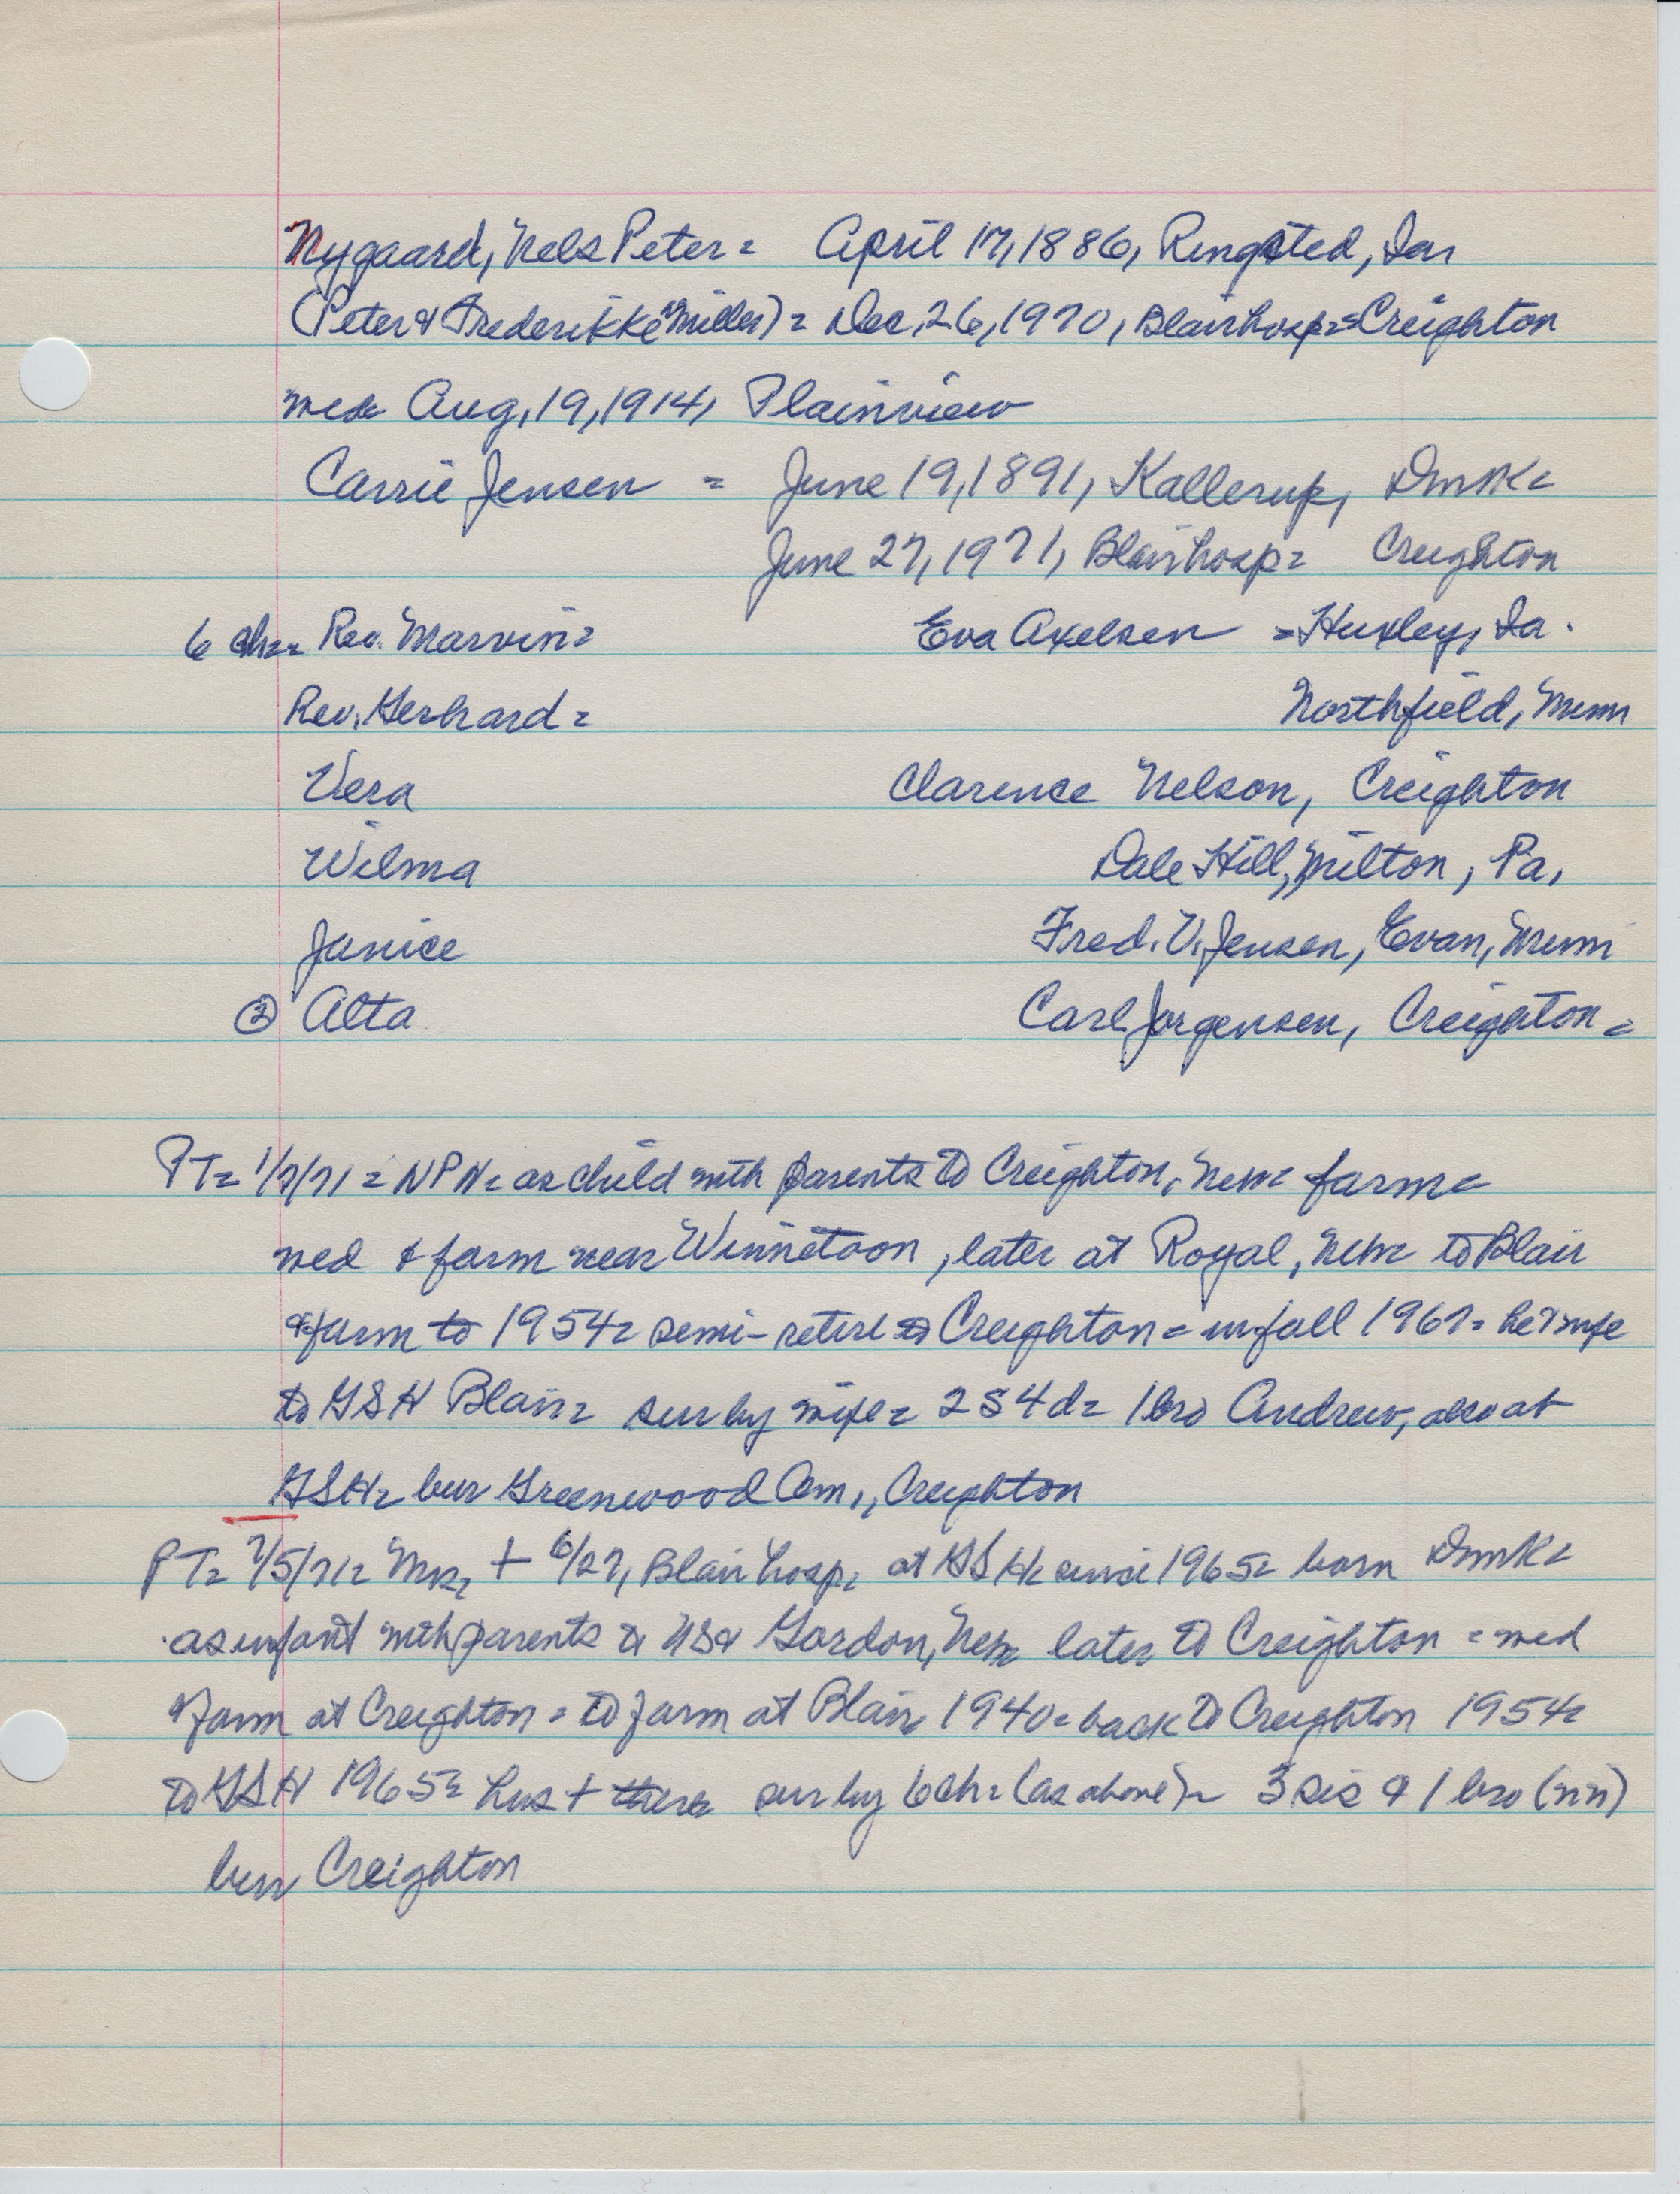 Nygaard, Nels Peter = April 17, 1886, Ringsted, Ia=
(Peter & Frederikke Miller) = Dec. 26, 1970, Blair hosp = Creighton
med= Aug. 19, 1914, Plainview
Carrie Jensen = June 19, 1891, Kallerup, Dmk=
June 27, 1971, Blair hosp = Creighton
6 ch== Rev. Marvin= Eva Axelsen = Huxley, Ia.
Rev. Gerhard = Northfield, Minn
Vera Clarence Nelson, Creighton
Wilma Dale Hill, Milton, Pa,
Janice Fred. V. Jensen, Evan, Minn
② Alta Carl Jorgensen, Creighton =
PT= 1/7/71 = NPN= as child with parents to Creighton, Neb= farm=
med & farm near Winnetoon, later at Royal, Neb= to Blair
& farm to 1954= semi-retire to Creighton = in fall 1967= he & wife
to GSH Blair= sur by wife= 2 S 4 d= 1 bro Andrew, also at
GSH= bur Greenwood Cem., Creighton
PT= 7/5/71= Mrs, + 6/27, Blair hosp= at GSH= since 1965= born Dmk=
as infant with parents to USA Gordon, Neb= later to Creighton = med
& farm at Creighton = to farm at Blair 1940= back to Creighton 1954=
to GSH 1965= hus + there sur by 6 ch= (as above)= 3 sis & 1 bro (nn)
bur Creighton